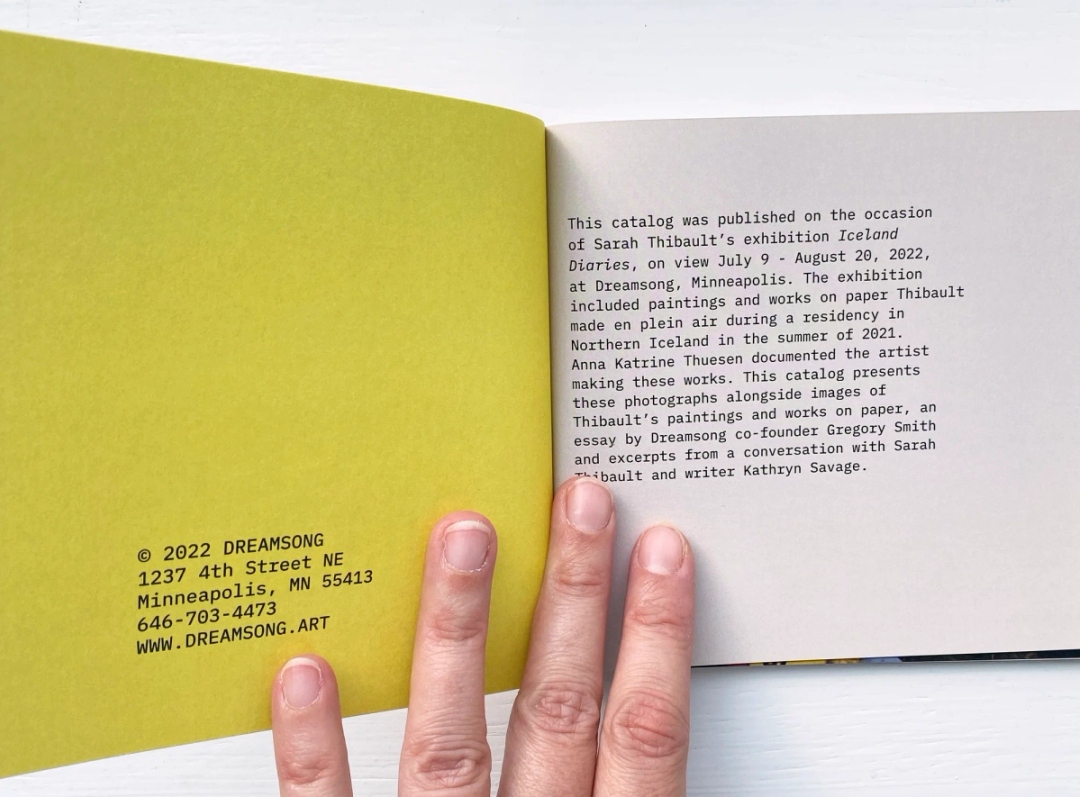 © 2022 DREAMSONG
1237 4th Street NE
Minneapolis, MN 55413
646-703-4473
WWW.DREAMSONG.ART
This catalog was published on the occasion
of Sarah Thibault’s exhibition Iceland
Diaries, on view July 9 - August 20, 2022,
at Dreamsong, Minneapolis. The exhibition
included paintings and works on paper Thibault
made en plein air during a residency in
Northern Iceland in the summer of 2021.
Anna Katrine Thuesen documented the artist
making these works. This catalog presents
these photographs alongside images of
Thibault’s paintings and works on paper, an
essay by Dreamsong co-founder Gregory Smith
and excerpts from a conversation with Sarah
Thibault and writer Kathryn Savage.